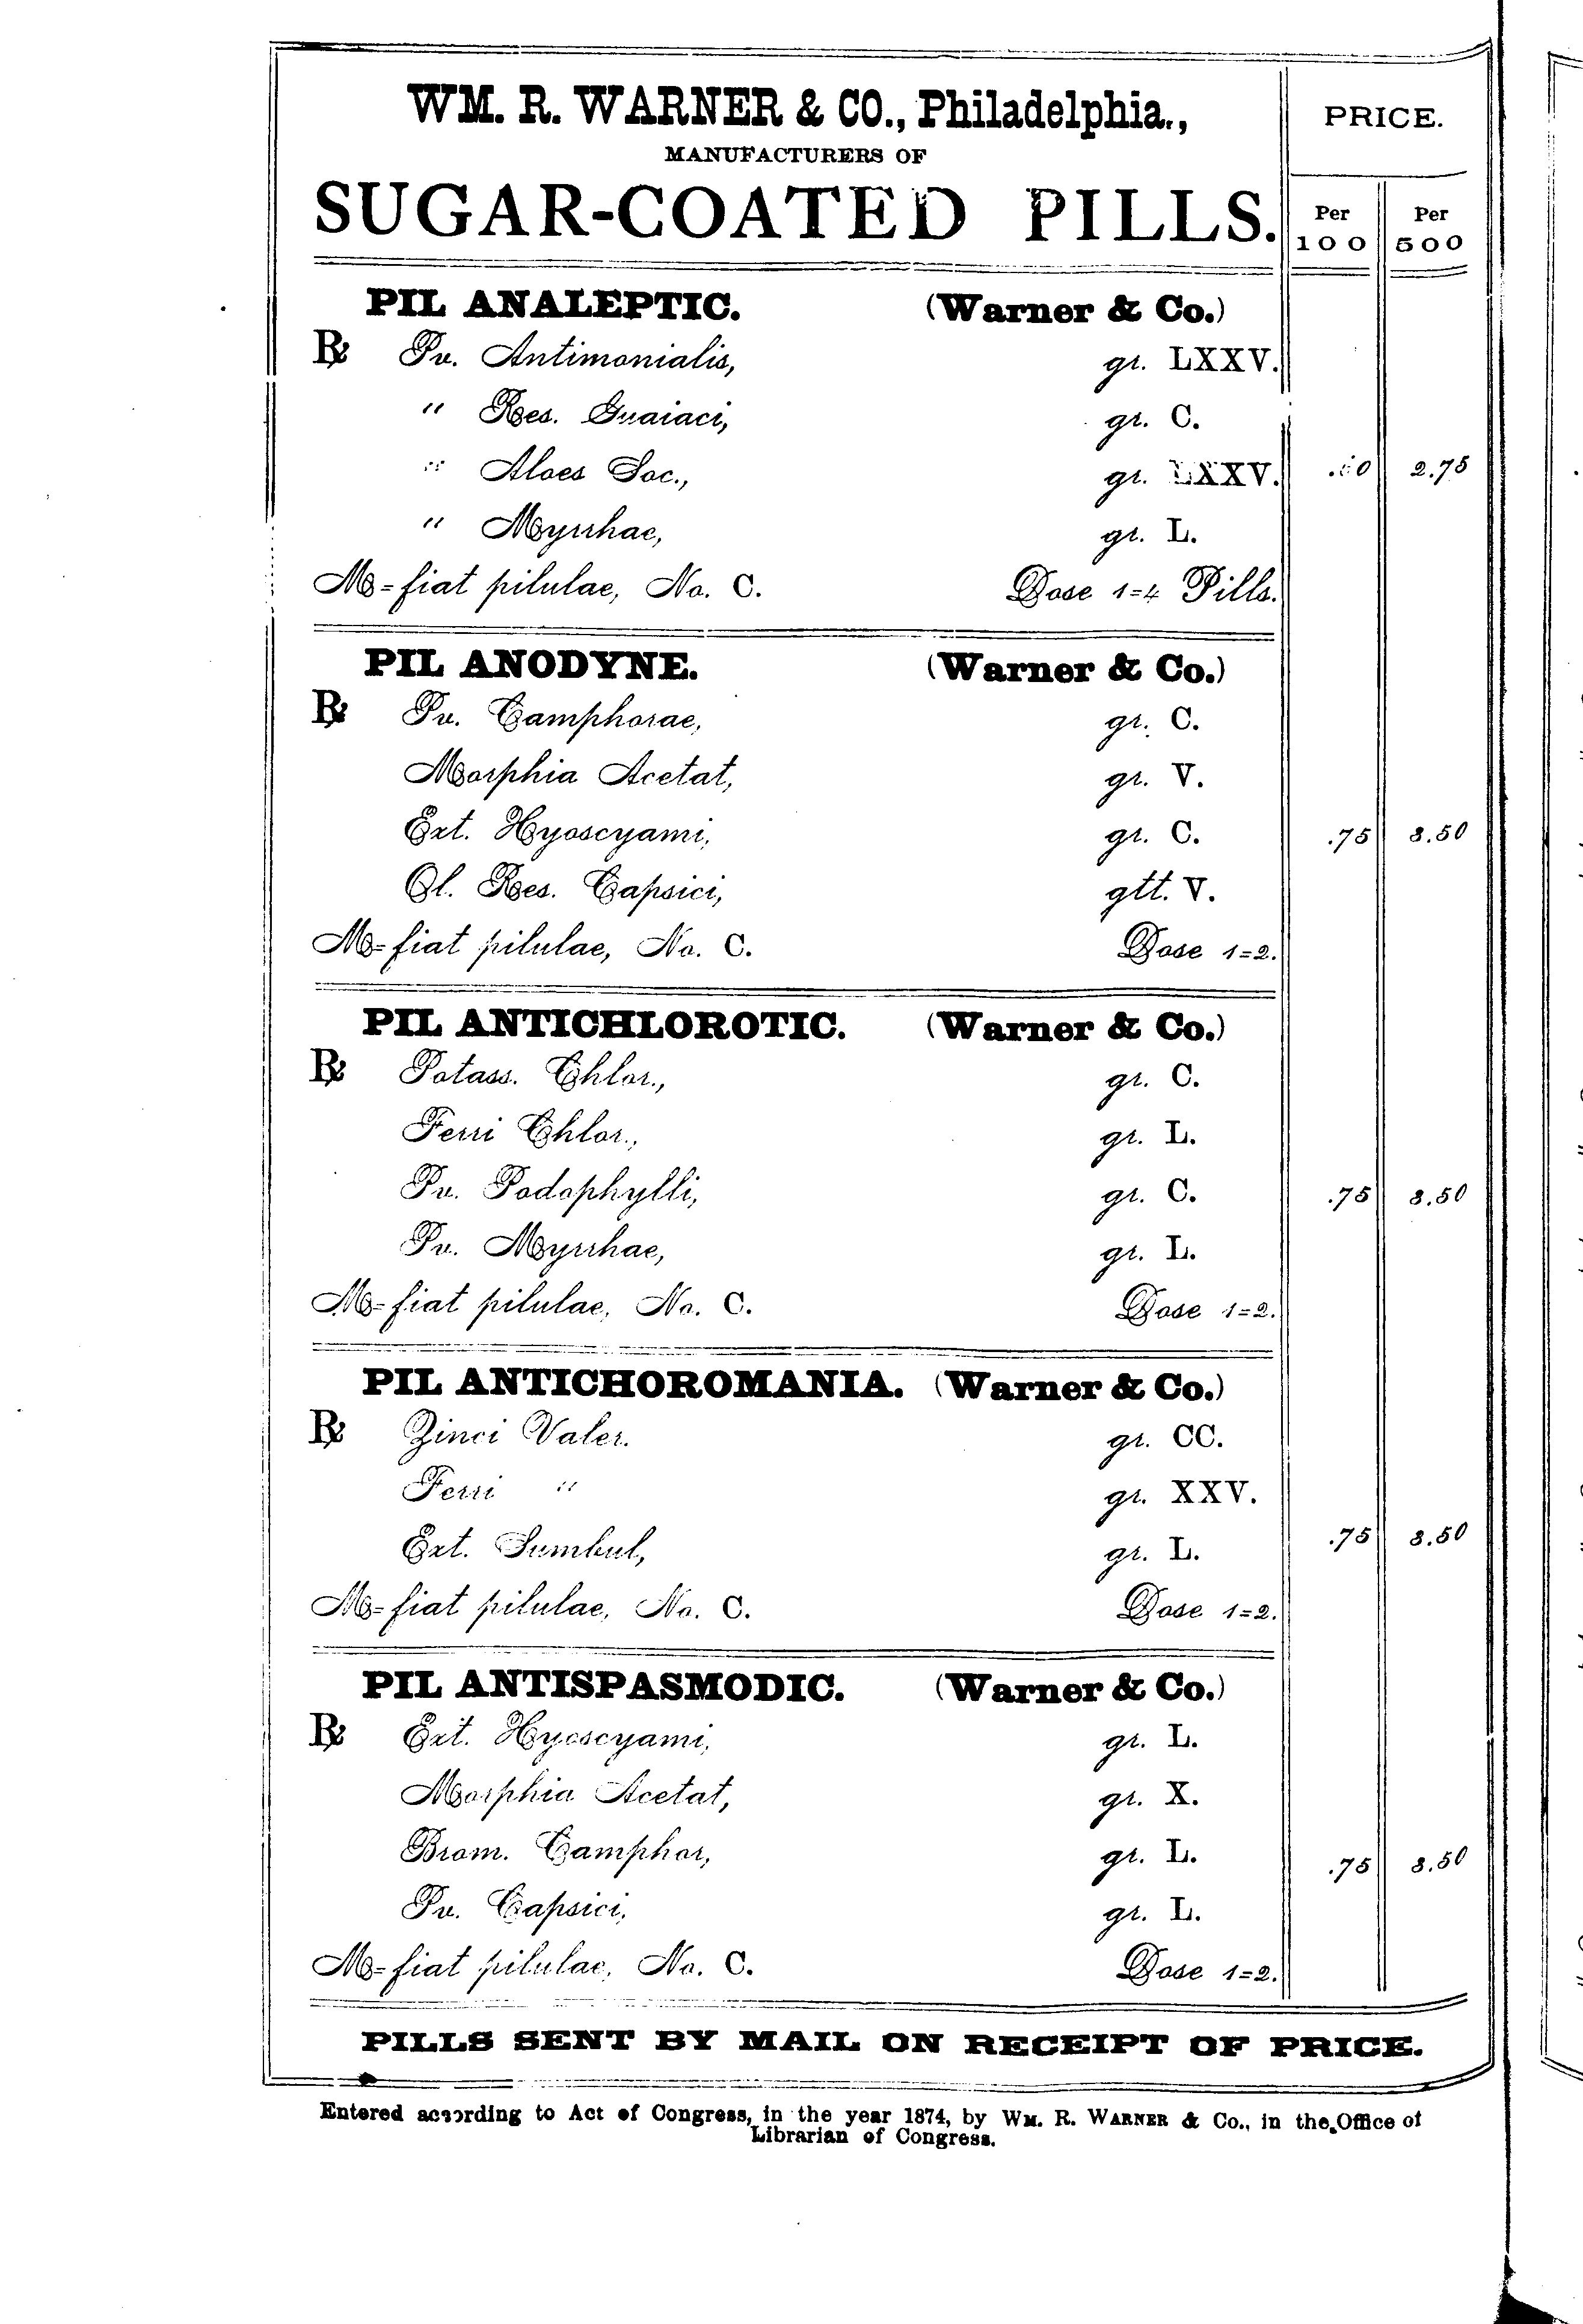 WM. R. WARNER & CO., Philadelphia.,
MANUFACTURERS OF
SUGAR-COATED PILLS.
PRICE.
Per 100
Per 500
PIL ANALEPTIC. (Warner & Co.)
℞ Pv. Antimonialis, gr. LXXV.
" Res. Guaiaci, gr. C.
" Aloes Soc., gr. LXXV. 2.75
" Myrrhae, gr. L.
M-fiat pilulae, No. C. Dose 1=4 Pills.
PIL ANODYNE. (Warner & Co.)
℞ Pv. Camphorae, gr. C.
Morphia Acetat, gr. V.
Ext. Hyoscyami, gr. C. .75 3.50
Ol. Res. Capsici, gtt. V.
M-fiat pilulae, No. C. Dose 1=2.
PIL ANTICHLOROTIC. (Warner & Co.)
℞ Potass. Chlor., gr. C.
Ferri Chlor., gr. L.
Pv. Podophylli, gr. C. .75 3.50
Pv. Myrrhae, gr. L.
M-fiat pilulae, No. C. Dose 1=2.
PIL ANTICHOROMANIA. (Warner & Co.)
℞ Zinci Valer. gr. CC.
Ferri " gr. XXV.
Ext. Sumbul, gr. L. .75 3.50
M-fiat pilulae, No. C. Dose 1=2.
PIL ANTISPASMODIC. (Warner & Co.)
℞ Ext. Hyoscyami, gr. L.
Morphia Acetat, gr. X.
Brom. Camphor, gr. L. .75 3.50
Pv. Capsici, gr. L.
M-fiat pilulae, No. C. Dose 1=2.
PILLS SENT BY MAIL ON RECEIPT OF PRICE.
Entered according to Act of Congress, in the year 1874, by WM. R. WARNER & Co., in the Office of
Librarian of Congress.